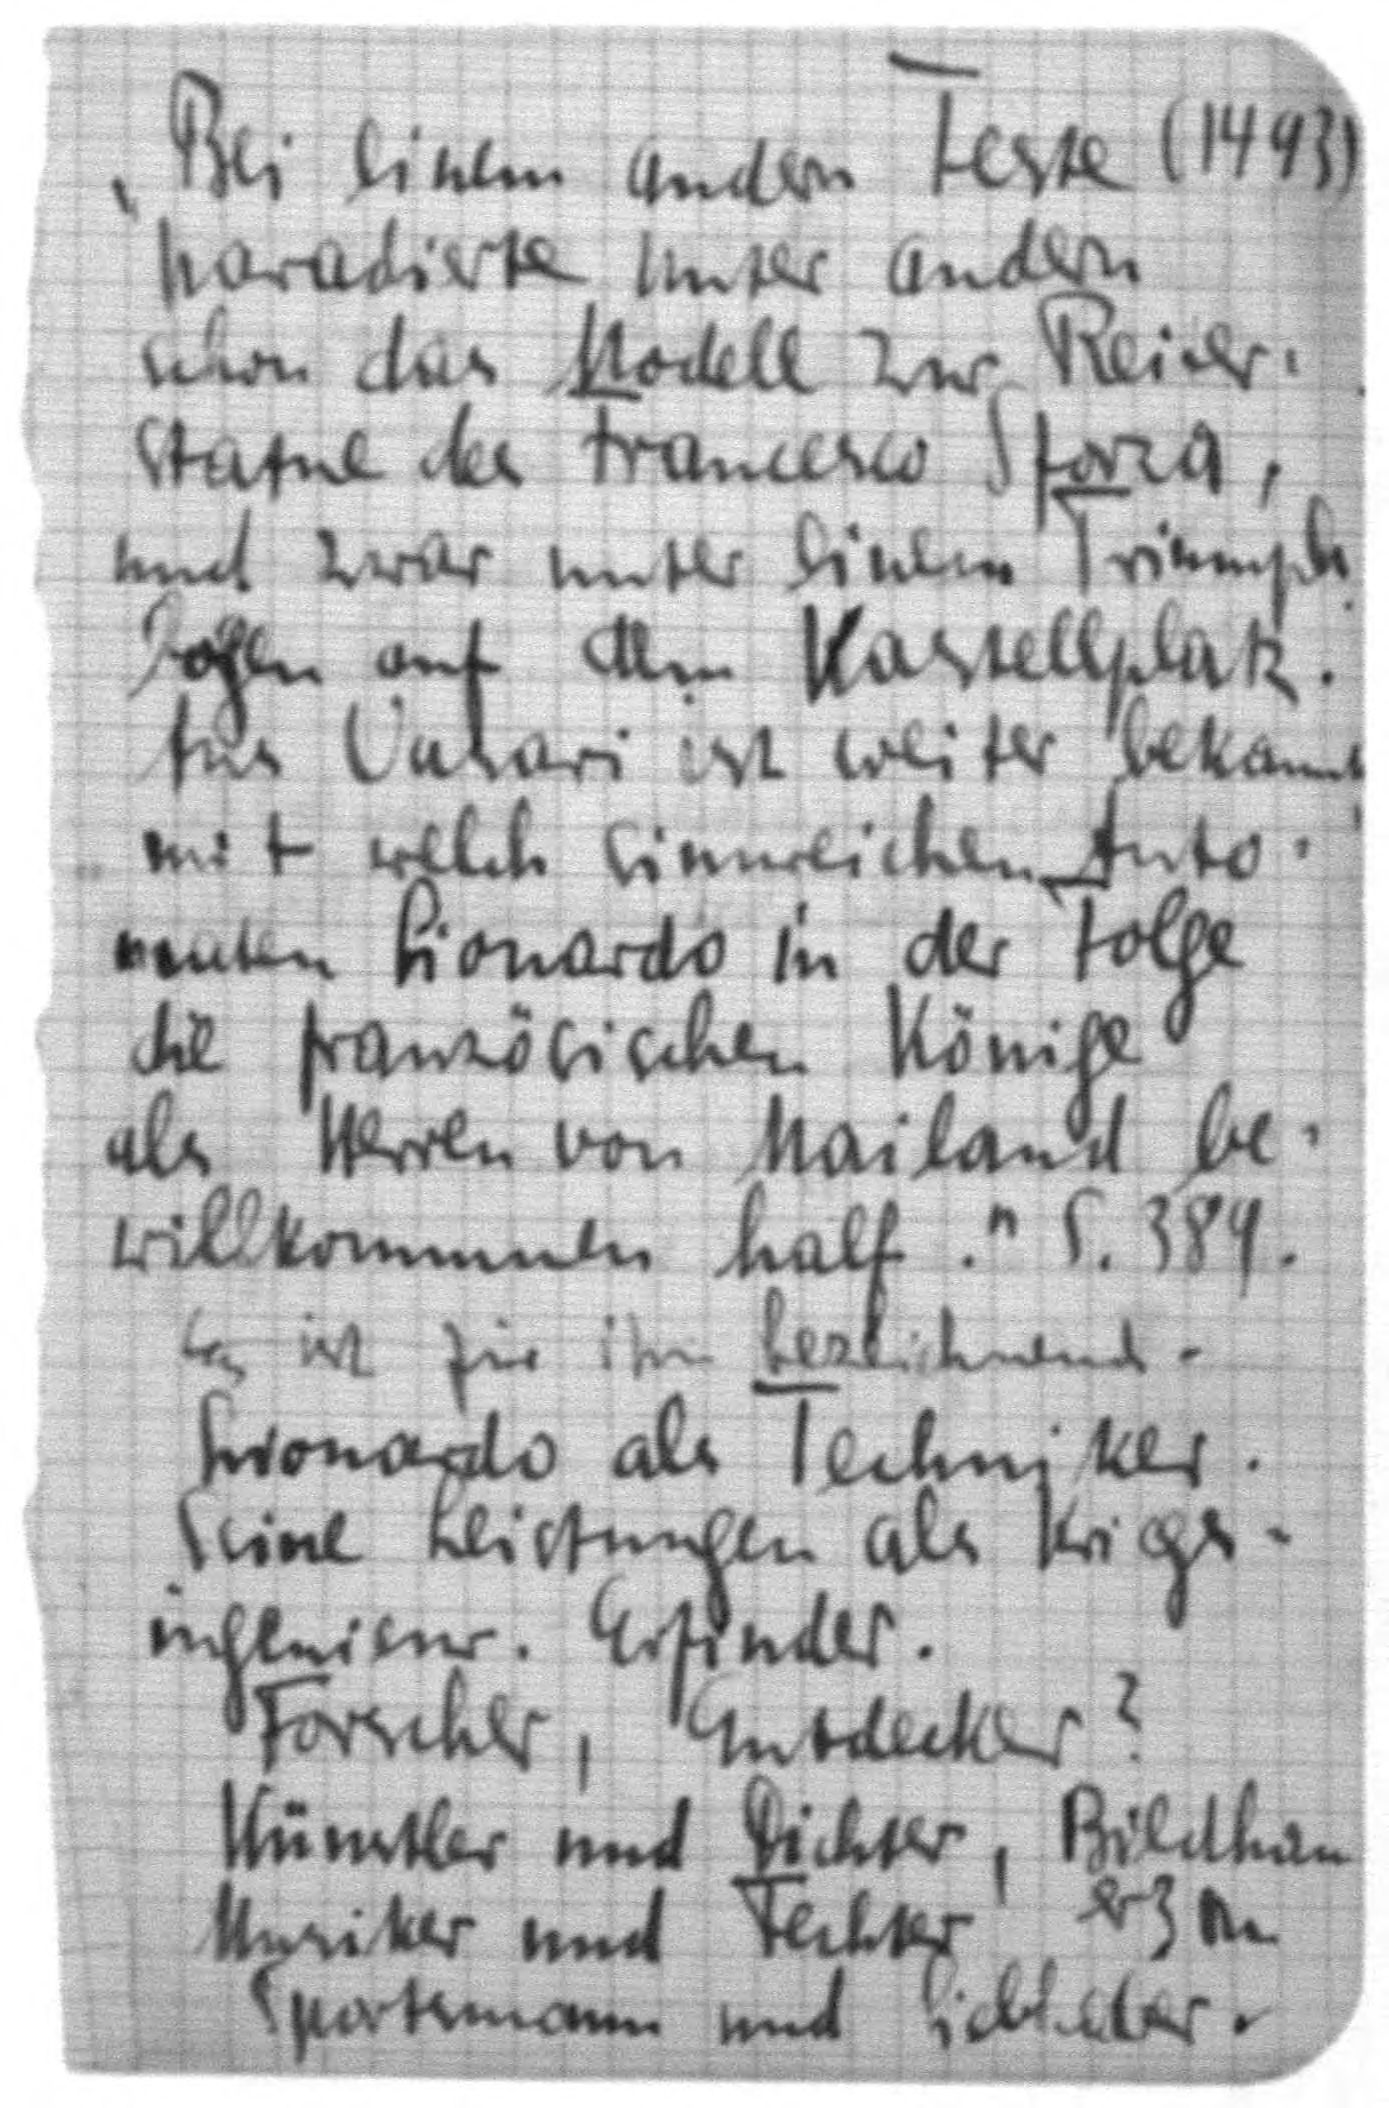 „Bei einem andern Feste (1493)
paradierte unter andern
schon das Modell zur Reiter-
statue des Francesco Sforza,
und zwar unter einem Triumph
bogen auf dem Kastellplatz.
Aus Vasari ist weiter bekannt
mit welch sinnreichen Auto-
maten Lionardo in der Folge
die französischen Könige
als Herren von Mailand be-
willkommnen half." S. 389.
Es ist für ihn bezeichnend.
Lionardo als Techniker.
Seine Leistungen als Krigs-
ingenieur. Erfinder.
Forscher, Entdecker?
Künstler und Dichter, Bildhau
Musiker und Fechter er
Sportsmann und Liebhaber.